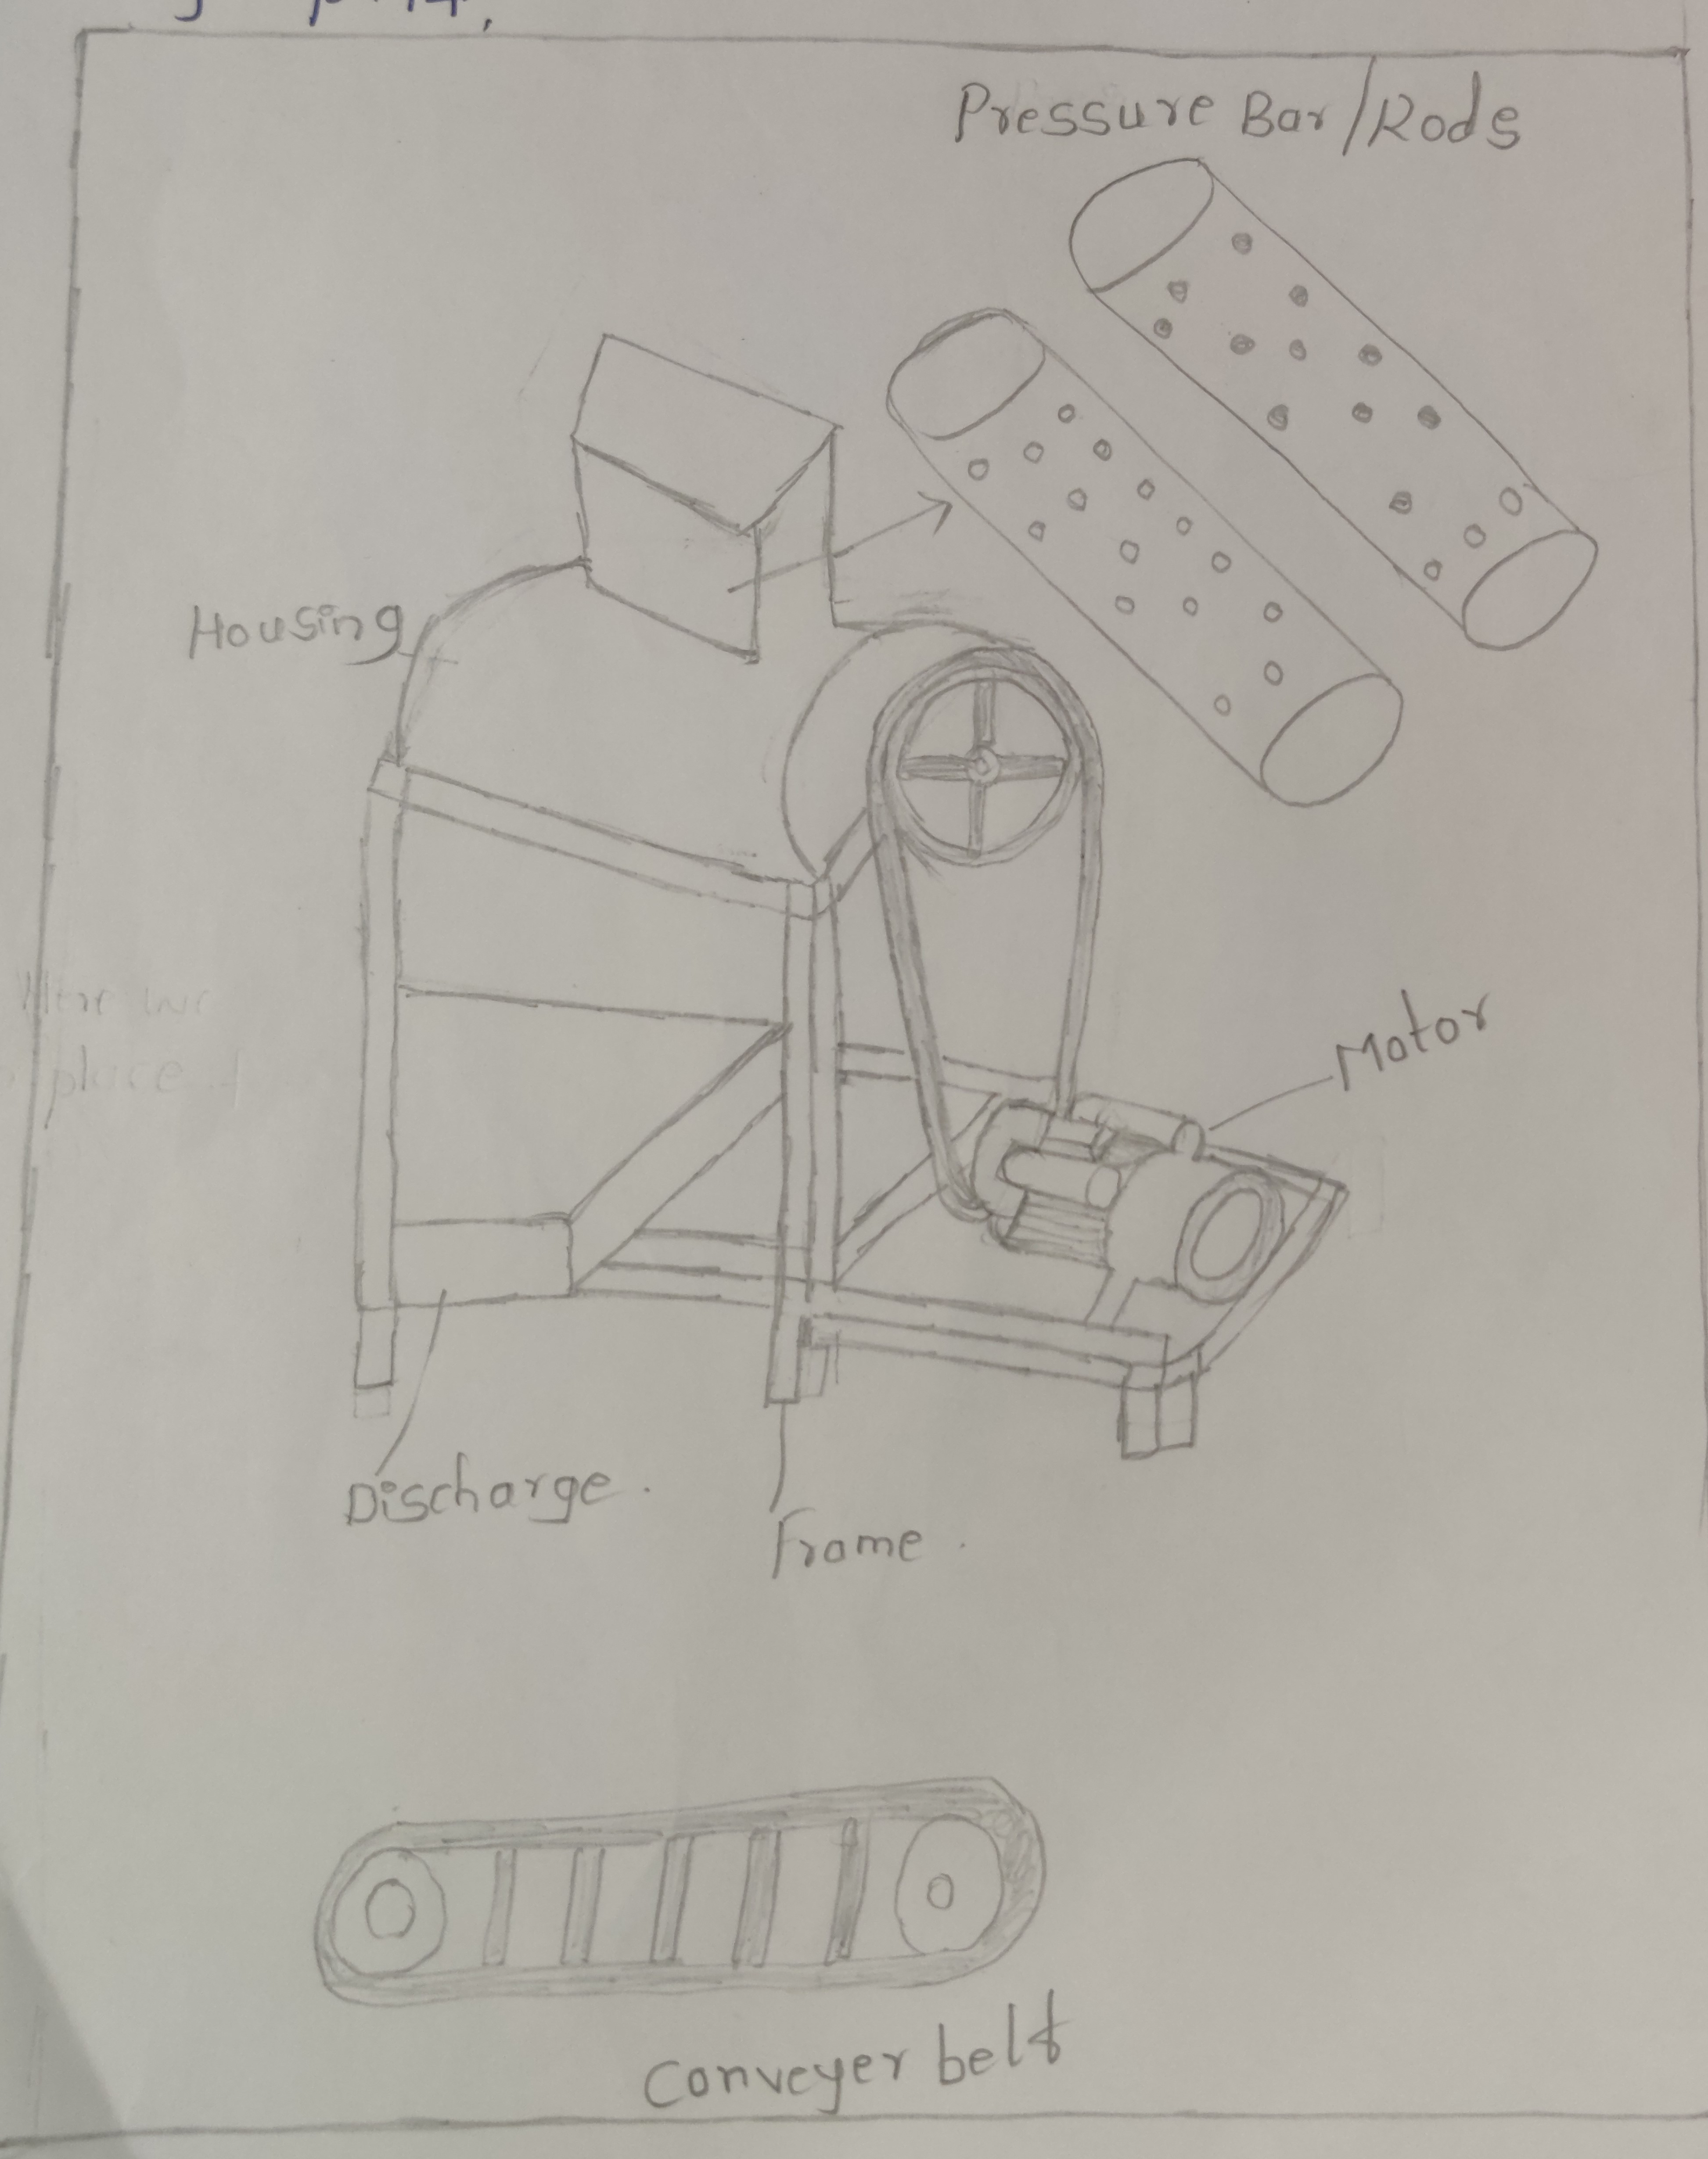 Pressure Bar/Rods
Housing
Here we
place
Motor
Discharge.
Frame.
Conveyer belt